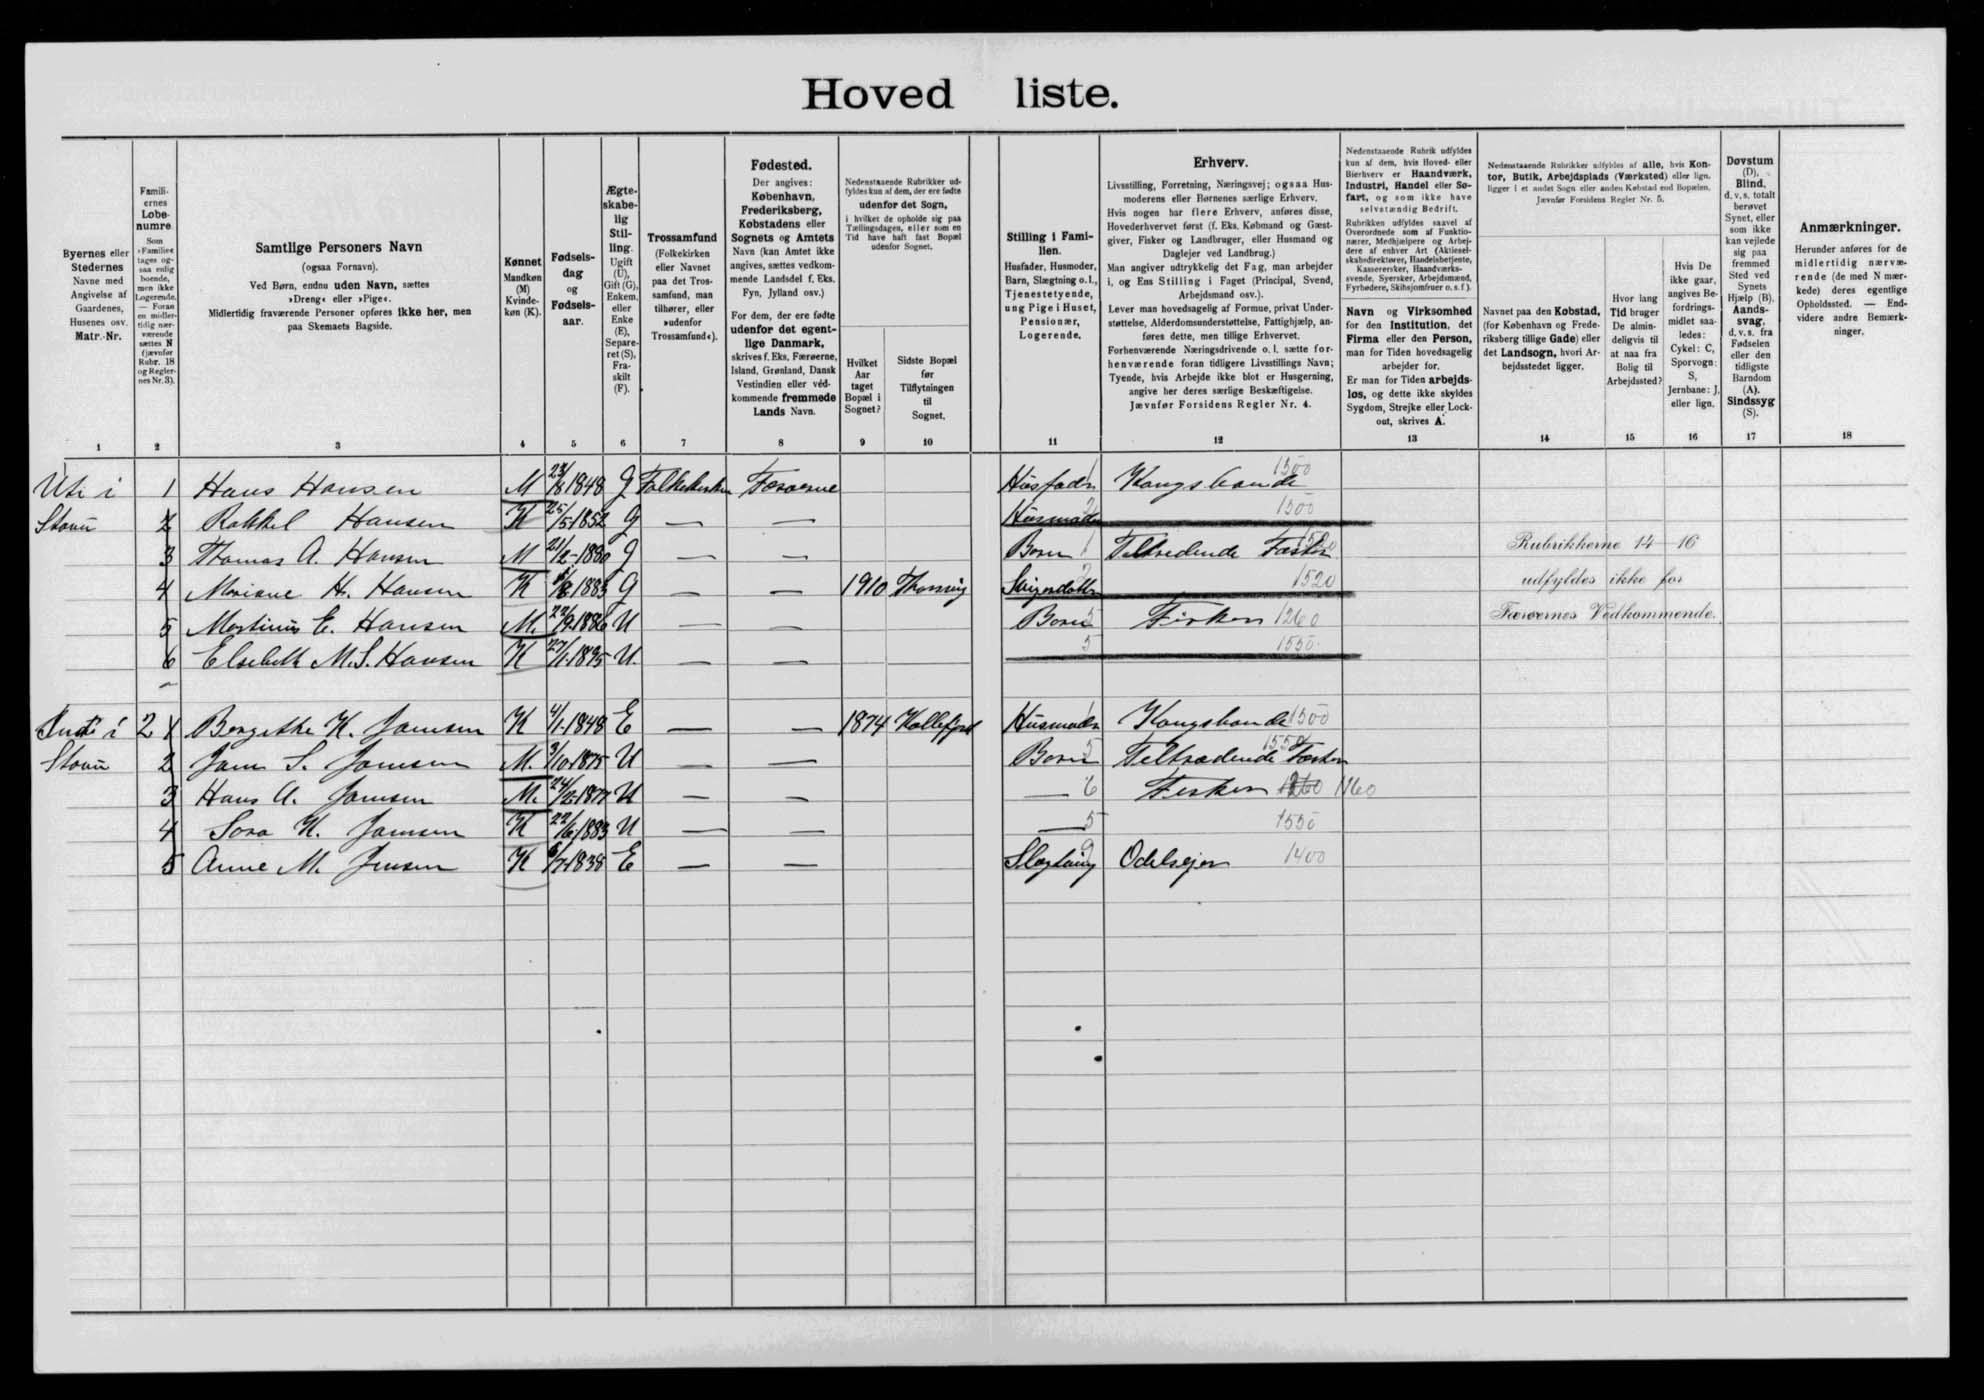 Hoved liste.
Byernes eller Stedernes Navne med Angivelse af Gaardenes, Husenes osv. Matr.-Nr.
Famili- ernes Løbe- numre
Som »Familie« tages og- saa enlig boende, men ikke Logerende. — Foran en midler- tidig nær- værende sættes N (jævnfør Rubr. 18 og Regler- nes Nr. 3).
Samtlige Personers Navn
(ogsaa Fornavn).
Ved Børn, endnu uden Navn, sættes
»Dreng« eller »Pige«.
Midlertidig fraværende Personer opføres ikke her, men
paa Skemaets Bagside.
Kønnet Mandkøn (M) Kvinde- køn (K).
Fødsels- dag og Fødsels- aar.
Ægte- skabe- lig Stil- ling. Ugift (U), Gift (G), Enkem. eller Enke (E), Separe- ret (S), Fra- skilt (F).
Trossamfund (Folkekirken eller Navnet paa det Tros- samfund, man tilhører, eller »udenfor Trossamfund«).
Fødested.
Der angives: København, Frederiksberg, Købstadens eller Sognets og Amtets Navn (kan Amtet ikke angives, sættes vedkom- mende Landsdel f. Eks. Fyn, Jylland osv.)
For dem, der ere fødte udenfor det egent- lige Danmark, skrives f. Eks. Færøerne, Island, Grønland, Dansk Vestindien eller ved- kommende fremmede Lands Navn.
Nedenstaaende Rubrikker ud- fyldes kun af dem, der ere fødte udenfor det Sogn, i hvilket de opholde sig paa Tællingsdagen, eller som en Tid have haft fast Bopæl udenfor Sognet.
Hvilket Aar taget Bopæl i Sognet?
Sidste Bopæl før Tilflytningen til Sognet.
Stilling i Fami- lien.
Husfader, Husmoder, Barn, Slægtning o.l., Tjenestetyende, ung Pige i Huset, Pensionær, Logerende.
Erhverv.
Livsstilling, Forretning, Næringsvej; ogsaa Hus- moderens eller Børnenes særlige Erhverv.
Hvis nogen har flere Erhverv, anføres disse, Hovederhvervet først (f. Eks. Købmand og Gæst- giver, Fisker og Landbruger, eller Husmand og Daglejer ved Landbrug.)
Man angiver udtrykkelig det Fag, man arbejder i, og Ens Stilling i Faget (Principal, Svend, Arbejdsmand osv.).
Lever man hovedsagelig af Formue, privat Under- støttelse, Alderdomsunderstøttelse, Fattighjælp, an- føres dette, men tillige Erhvervet.
Forhenværende Næringsdrivende o. l. sætte for- henværende foran tidligere Livsstillings Navn; Tyende, hvis Arbejde ikke blot er Husgerning, angive her deres særlige Beskæftigelse.
Jævnfør Forsidens Regler Nr. 4.
Nedenstaaende Rubrik udfyldes kun af dem, hvis Hoved- eller Bierhverv er Haandværk, Industri, Handel eller Sø- fart, og som ikke have selvstændig Bedrift.
Rubrikken udfyldes saavel af Overordnede som af Funktio- nærer, Medhjælpere og Arbej- dere af enhver Art (Aktiesel- skabsdirektører, Handelsbetjente, Kasserersker, Haandværks- svende, Syersker, Arbejdsmænd, Fyrbødere, Skibsjomfruer o. s. f.).
Navn og Virksomhed for den Institution, det Firma eller den Person, man for Tiden hovedsagelig arbejder for.
Er man for Tiden arbejds- løs, og dette ikke skyldes Sygdom, Strejke eller Lock- out, skrives A.
Nedenstaaende Rubrikker udfyldes af alle, hvis Kon- tor, Butik, Arbejdsplads (Værksted) eller lign. ligger i et andet Sogn eller anden Købstad end Bopælen.
Jævnfør Forsidens Regler Nr. 5.
Navnet paa den Købstad, (for København og Frede- riksberg tillige Gade) eller det Landsogn, hvori Ar- bejdsstedet ligger.
Hvor lang Tid bruger De almin- deligvis til at naa fra Bolig til Arbejdssted?
Hvis De ikke gaar, angives Be- fordrings- midlet saa- ledes: Cykel: C, Sporvogn: S, Jernbane: J, eller lign.
Døvstum (D), Blind, d. v. s. totalt berøvet Synet, eller som ikke kan vejlede sig paa fremmed Sted ved Synets Hjælp (B). Aands- svag, d. v. s. fra Fødselen eller den tidligste Barndom (A). Sindssyg (S).
Anmærkninger.
Herunder anføres for de midlertidig nærvæ- rende (de med N mær- kede) deres egentlige Opholdssted. — End- videre andre Bemærk- ninger.
1 2 3 4 5 6 7 8 9 10 11 12 13 14 15 16 17 18
Uti i 1 Hans Hansen M 23/8 1848 G Folkekirken Færøerne Husfader 1 Kongsbonde 1500
Stovu 2 Rakkel Hansen K 25/5-1852 G — — Husmoder 1500
3 Thomas A. Hansen M 21/2-1880 G — — Børn 1 Tiltrædende Fæster
Rubrikkerne 14—16
4 Mariane H. Hansen K 1883 G — — 1910 Svigerdatter 1520
udfyldes ikke for
5 Martinus E. Hansen M. 22/9-1886 U — — Børn 5 Fisker 1260
Færøernes Vedkommende.
6 Elsebeth M. S. Hansen K 27/1-1895 U. — — 5 1550
Inni í 2 1 K. Joensen K 4/1-1848 E — — 1874 Husmoder 1 Kongsbonde 1500
Stovu 2 S. Joensen M. 3/10-1875 U — — Børn 5 Tiltrædende Fæster 1550
3 Hans A. Joensen M. 24/2-1877 U — — — 6 Fisker 1260 1160
4 K. Joensen K 22/6-1883 U — — — 5 1550
5 Anne M. Jensen K 6/7-1838 E — — Slægtning 9 Odelsejer 1400